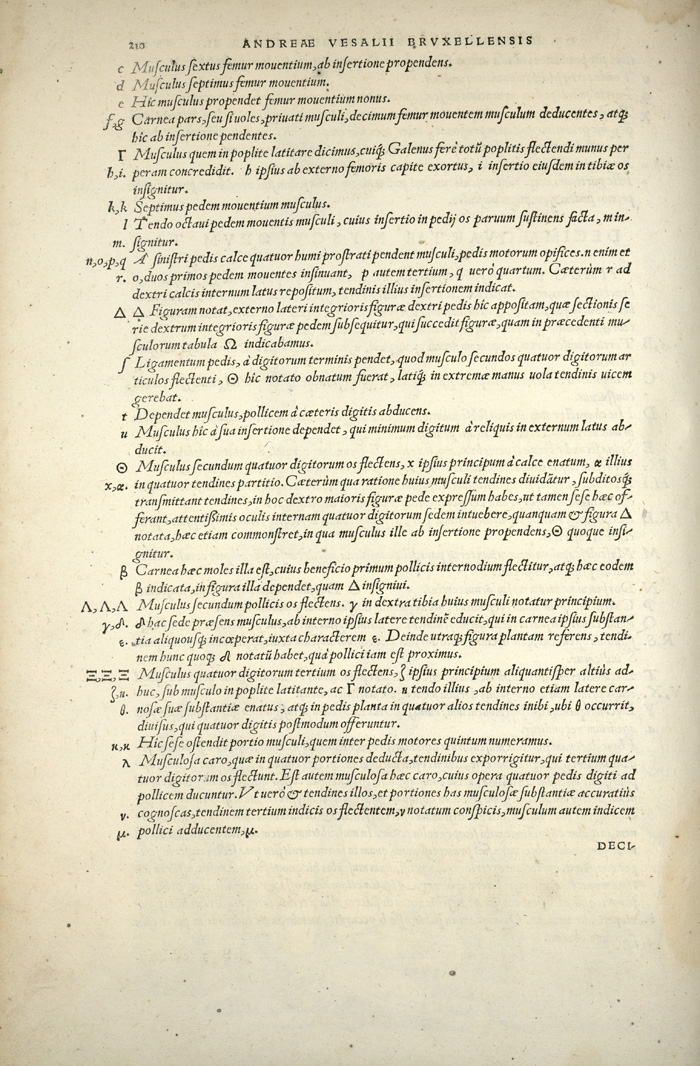 210 ANDREAE VESALII BRVXELLENSIS
c Musculus ſextus femur mouentium, ab inſertione propendens.
d Muſculus ſeptimus femur mouentium.
e Hic muſculus propendet femur mouentium nonus.
f,g Carnea pars, ſeu ſi uoles, priuati muſculi, decimum femur mouentem muſculum deducentes, atq;
hic ab inſertione pendentes.
Γ Muſculus quem in poplite latitare dicimus, cuiq; Galenus ferè totũ poplitis flectendi munus per
h,i. peram concredidit. h ipſius ab externo femoris capite exortus, i inſertio eiuſdem in tibiæ os
inſignitur.
k,k Septimus pedem mouentium muſculus.
l Tendo octaui pedem mouentis muſculi, cuius inſertio in pedij os paruum ſuſtinens facta, m in-
m. ſignitur.
n,o,p,q A ſiniſtri pedis calce quatuor humi proſtrati pendent muſculi, pedis motorum opifices. n enim et
r. o, duos primos pedem mouentes inſinuant, p autem tertium, q uerò quartum. Cæterùm r ad
dextri calcis internum latus repoſitum, tendinis illius inſertionem indicat.
Δ Δ Figuram notat, externo lateri integrioris figuræ dextri pedis hic appoſitam, quæ ſectionis ſe
rie dextrum integrioris figuræ pedem ſubſequitur, qui ſuccedit figuræ, quam in præcedenti mu-
ſculorum tabula Ω indicabamus.
ſ Ligamentum pedis, à digitorum terminis pendet, quod muſculo ſecundos quatuor digitorum ar
ticulos flectenti, Θ hic notato obnatum fuerat, latiq; in extremæ manus uola tendinis uicem
gerebat.
t Dependet muſculus, pollicem à cæteris digitis abducens.
u Muſculus hic à ſua inſertione dependet, qui minimum digitum à reliquis in externum latus ab-
ducit.
Θ Muſculus ſecundum quatuor digitorum os flectens, x ipſius principum à calce enatum, α illius
x,α. in quatuor tendines partitio. Cæterùm qua ratione huius muſculi tendines diuidãtur, ſubditosq;
transmittant tendines, in hoc dextro maioris figuræ pede expreſſum habes, ut tamen ſeſe hæc of-
ferant, attentißimis oculis internam quatuor digitorum ſedem intuebere, quanquam & figura Δ
notata, hæc etiam commonſtret, in qua muſculus ille ab inſertione propendens, Θ quoque inſi-
gnitur.
β Carnea hæc moles illa eſt, cuius beneficio primum pollicis internodium flectitur, atq; hæc eodem
β indicata, in figura illa dependet, quam Δ inſigniui.
Λ,Λ,Λ Muſculus ſecundum pollicis os flectens. γ in dextra tibia huius muſculi notatur principium.
γ,δ. δ hac ſede præſens muſculus, ab interno ipſius latere tendinẽ educit, qui in carnea ipſius ſubſtan-
ε. tia aliquouſq; incœperat, iuxta characterem ε. Deinde utraq; figura plantam referens, tendi-
nem hunc quoq; δ notatũ habet, quà pollici iam eſt proximus.
Ξ,Ξ,Ξ Muſculus quatuor digitorum tertium os flectens, ζ ipſius principium aliquantiſper altiùs ad-
ζ,η. huc, ſub muſculo in poplite latitante, ac Γ notato. η tendo illius, ab interno etiam latere car-
θ. noſæ ſuæ ſubſtantiæ enatus, atq; in pedis planta in quatuor alios tendines inibi, ubi θ occurrit,
diuiſus, qui quatuor digitis poſtmodum offeruntur.
κ,κ Hic ſeſe oſtendit portio muſculi, quem inter pedis motores quintum numeramus.
λ Muſculoſa caro, quæ in quatuor portiones deducta, tendinibus exporrigitur, qui tertium qua-
tuor digitorum os flectunt. Eſt autem muſculoſa hæc caro, cuius opera quatuor pedis digiti ad
pollicem ducuntur. Vt uerò & tendines illos, et portiones has muſculoſæ ſubſtantiæ accuratiùs
ν. cognoſcas, tendinem tertium indicis os flectentem, ν notatum conſpicis, muſculum autem indicem
μ. pollici adducentem, μ.
DECI-